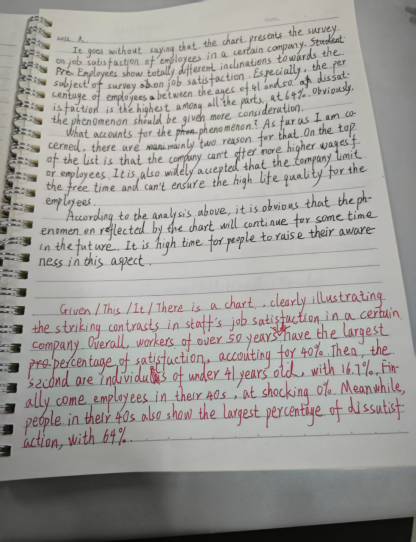 It goes without saying that the chart presents the survey
on job satisfaction of employees in a certain company. Student
Pre Employees show totally different inclinations towards the
subject of survey on job satisfaction. Especially, the per
centage of employees between the ages of 41 and 50 of dissat-
isfaction is the highest among all the parts, at 64%. Obviously,
the phenomenon should be given more consideration.
What accounts for the phenomenon? As far as I am co-
cerned, there are mainly two reason for that. On the top
of the list is that the company can't offer more higher wages f
or employees. It is also widely accepted that the company limit
the free time and can't ensure the high life quality for the
employees.
According to the analysis above, it is obvious that the ph-
enomenon reflected by the chart will continue for some time
in the future. It is high time for people to raise their aware-
ness in this aspect.
Given / This / It / There is a chart, clearly illustrating
the striking contrasts in staff's job satisfaction in a certain
company Overall, workers of over 50 years old have the largest
pro percentage of satisfaction, accouting for 40%. Then, the
second are individuals of under 41 years old, with 16.7%. Fin-
ally come employees in their 40s, at shocking 0%. Meanwhile,
people in their 40s also show the largest percentage of dissutisf-
action, with 64%.